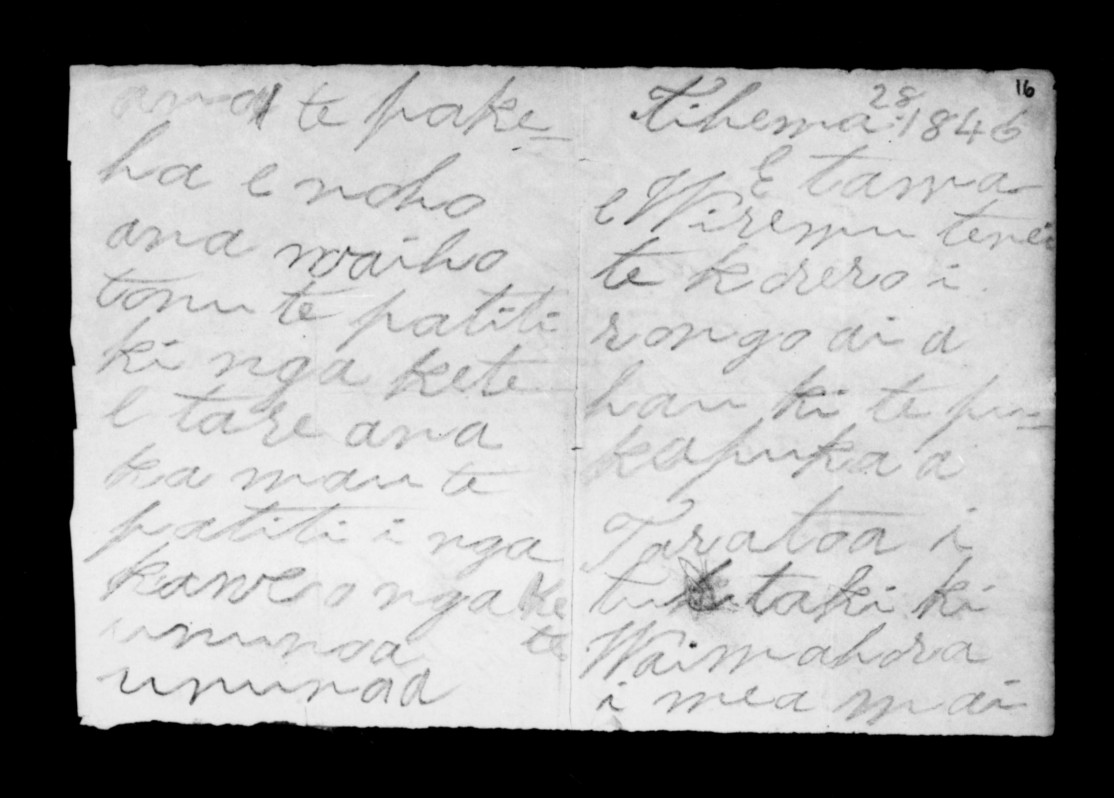 16
28
Tihema 1846
E tama
e Wiremu tenei
te korero i
rongo ai a
hau ki te pu=
kapuka a
Taratoa i
tukitaki ki
Waimahora
i mea mai
ana te pake=
ha e noho
ana waiho
tonu te patiti
ki nga kete
e tare ana
ka mau te
patiti i nga
kawe o nga ke
te
ununoa
ununoa